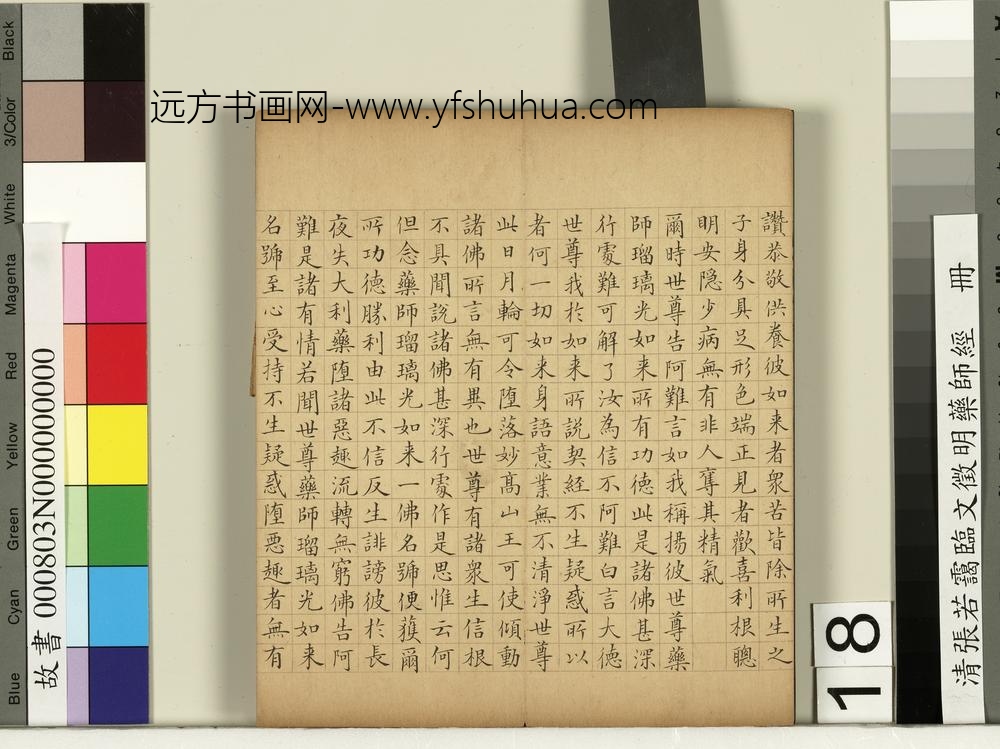 远方书画网-www.yfshuhua.com
讚恭敬供養彼如来者衆苦皆除所生之
子身分具足形色端正見者歡喜利根聰
明安隐少病無有非人奪其精氣
爾時世尊告阿難言如我稱揚彼世尊藥
師瑠璃光如来所有功德此是諸佛甚深
行處難可解了汝為信不阿難白言大德
世尊我於如来所說契経不生疑惑所以
者何一切如来身語意業無不清淨世尊
此日月輪可令堕落妙髙山王可使傾動
諸佛所言無有異也世尊有諸衆生信根
不具聞說諸佛甚深行處作是思惟云何
但念藥師瑠璃光如来一佛名號便獲爾
所功德勝利由此不信反生誹謗彼於長
夜失大利藥堕諸惡趣流轉無窮佛告阿
難是諸有情若聞世尊藥師瑠璃光如来
名號至心受持不生疑惑堕惡趣者無有
清張若靄臨文徵明藥師經 冊
18
故書 000803N000000000
Blue
Cyan
Green
Yellow
Red
Magenta
White
3/Color
Black